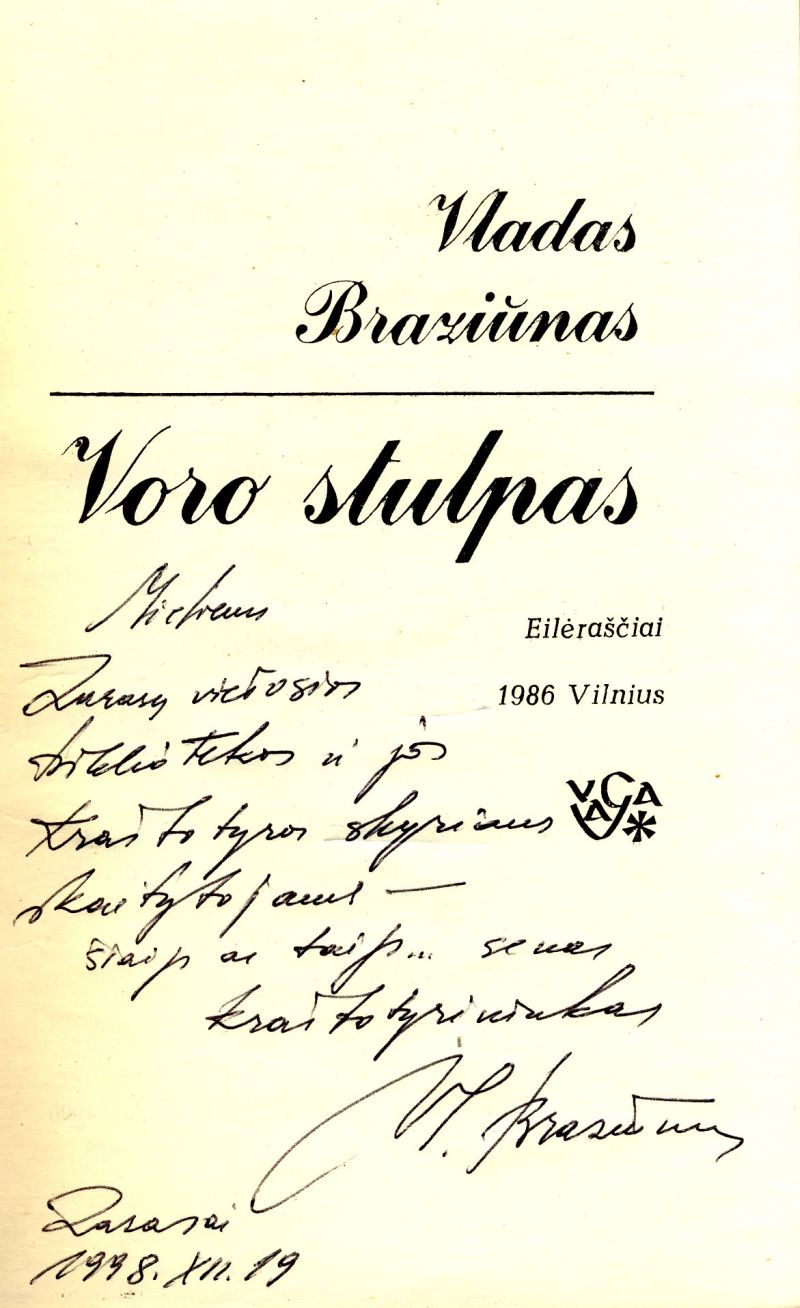 Vladas
Braziūnas
Voro stulpas
Eilėraščiai
1986 Vilnius
VAGA
Mieliems
Zarasų viešosios
bibliotekos ir jos
kraštotyros skyriaus
skaitytojams —
šiaip ar taip... senas
kraštotyrininkas
Vl. Braziūnas
Zarasai
1998.XII.19